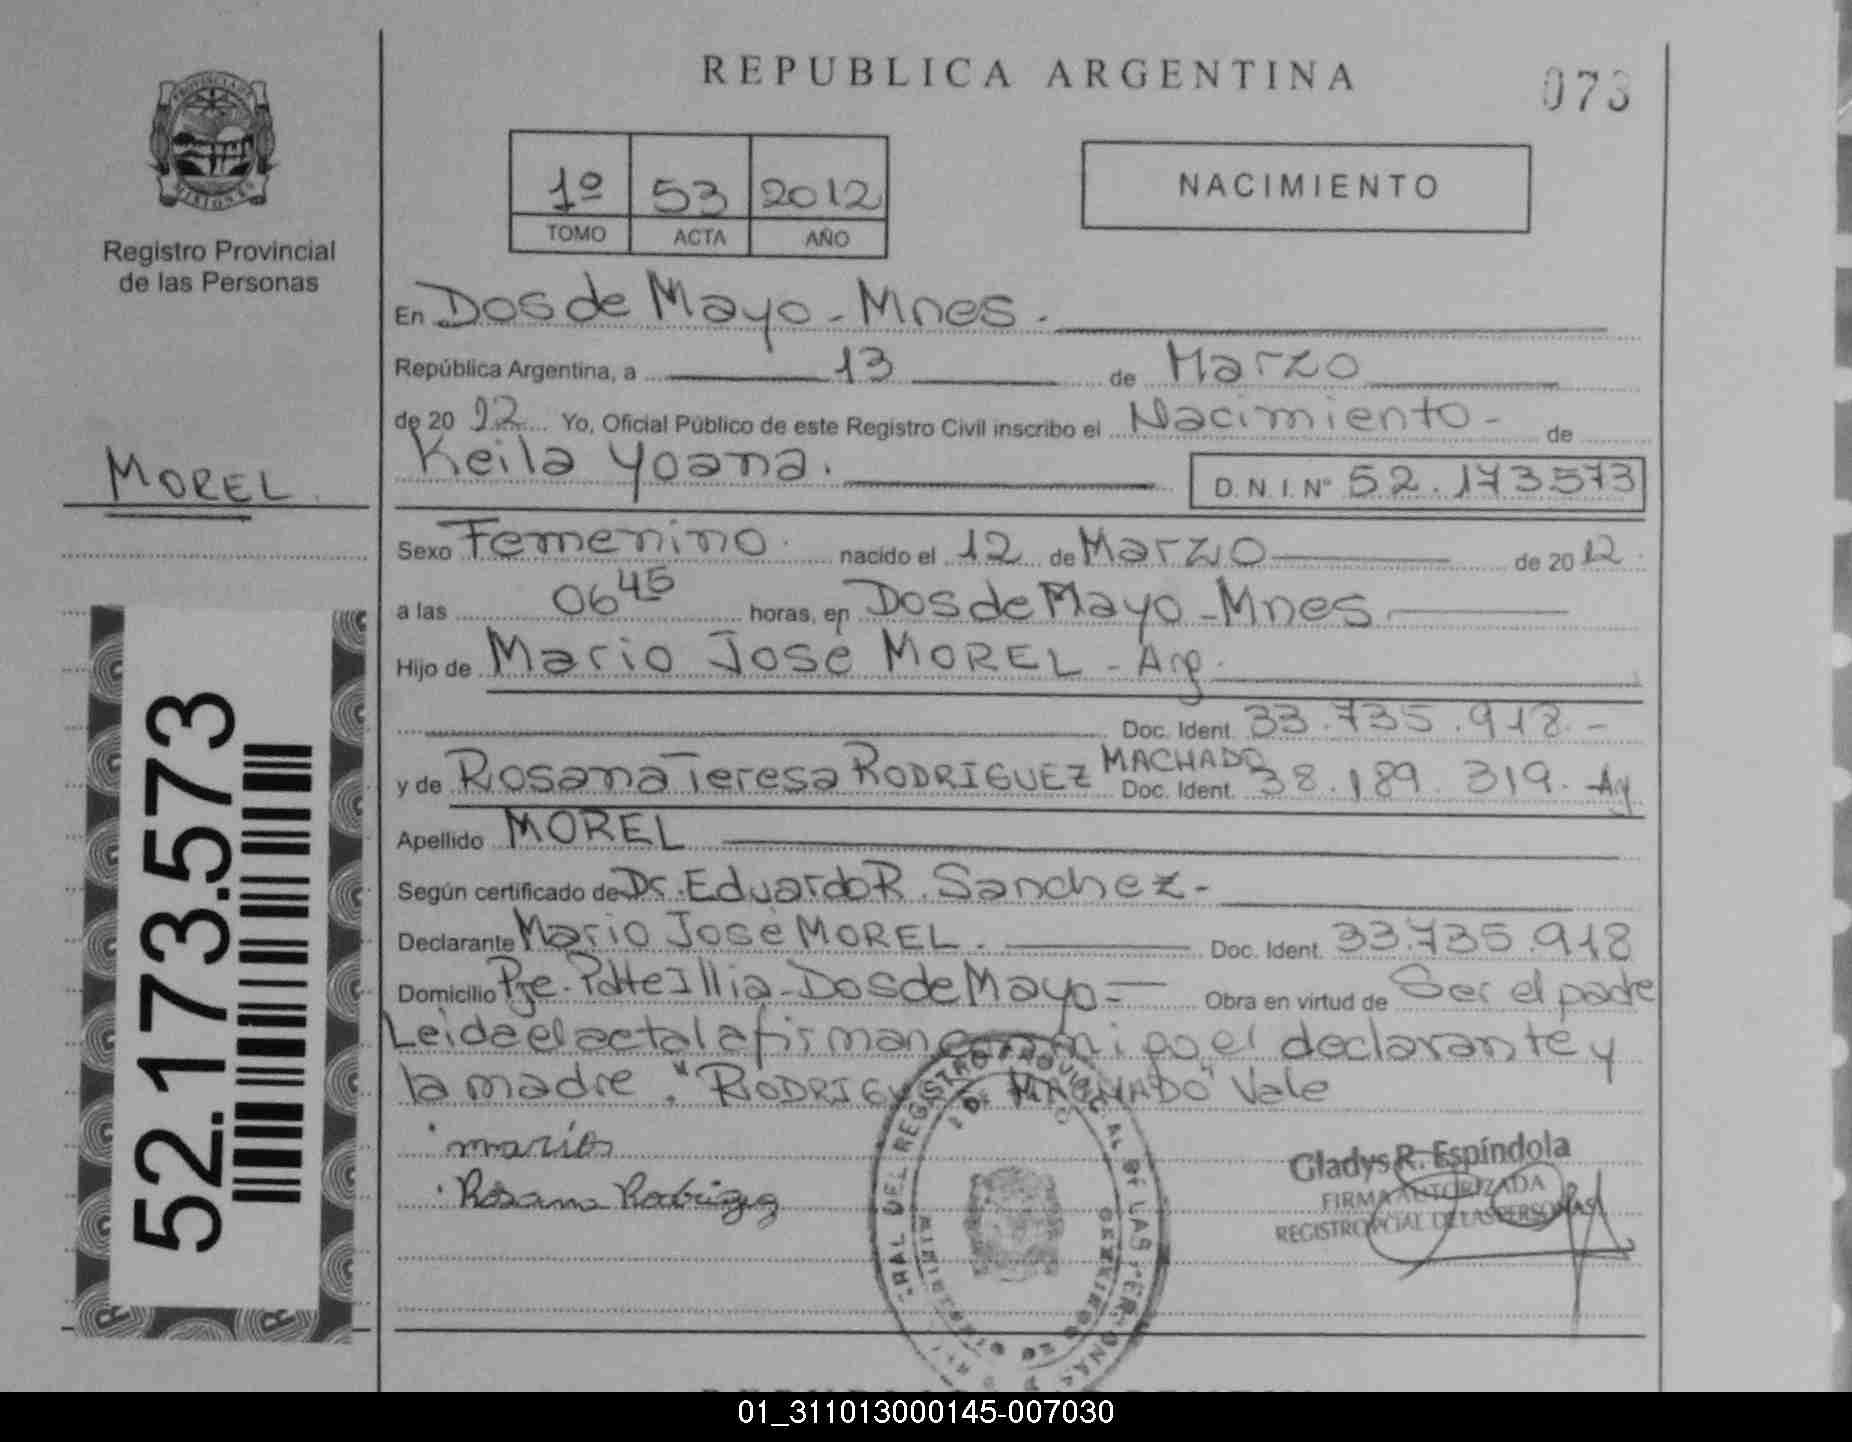 REPUBLICA ARGENTINA
073
Registro Provincial
de las Personas
1º 53 2012
TOMO ACTA AÑO
NACIMIENTO
En Dos de Mayo - Mnes.
República Argentina, a 13 de Marzo
de 20 12 Yo, Oficial Público de este Registro Civil inscribo el Nacimiento - de
Keila Yoana.
D.N.I. Nº 52.173573
MOREL
Sexo Femenino nacido el 12 de Marzo de 20 12
a las 06 45 horas, en Dos de Mayo - Mnes
Hijo de Mario José MOREL - Arg.
Doc. Ident. 33.735.918.-
y de Rosana Teresa RODRIGUEZ MACHADO Doc. Ident. 38.189.319. Arg
Apellido MOREL
Según certificado de Dr. Eduardo R. Sanchez -
Declarante Mario José MOREL. Doc. Ident. 33.735.918
Domicilio Pje. Pdte Illia - Dos de Mayo = Obra en virtud de Ser el padre
Leida el acta la firman conmigo el declarante y
la madre. "RODRIGUEZ MACHADO" Vale
mario
Rosana Rodriguez
Gladys R. Espíndola
FIRMA AUTORIZADA
REGISTRO PCIAL DE LAS PERSONAS
52.173.573
01_311013000145-007030